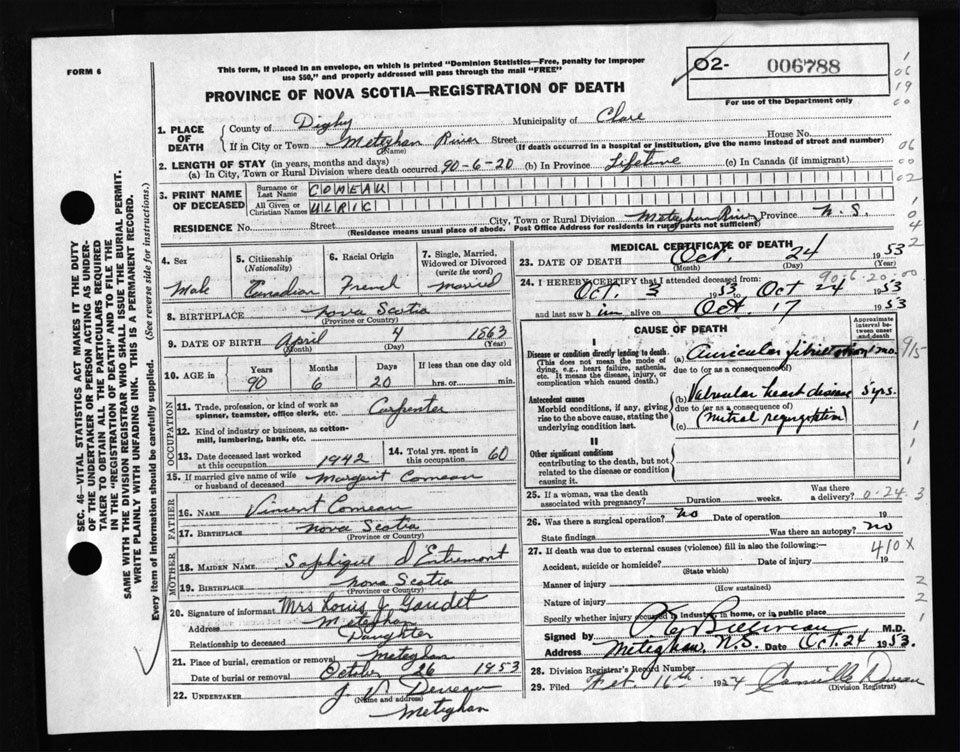 FORM 6
This form, if placed in an envelope, on which is printed "Dominion Statistics—Free, penalty for improper
use $50," and properly addressed will pass through the mail "FREE"
PROVINCE OF NOVA SCOTIA—REGISTRATION OF DEATH
02- 006788
For use of the Department only
1. PLACE OF DEATH
County of Digby Municipality of Clare
If in City or Town Meteghan River Street House No.
(Name) (If death occurred in a hospital or institution, give name instead of street and number)
2. LENGTH OF STAY (in years, months and days)
(a) In City, Town or Rural Division where death occurred 90-6-20 (b) In Province Lifetime (c) In Canada (if immigrant)
3. PRINT NAME OF DECEASED
Surname or Last Name COMEAU
All Given or Christian Names ULRIC
RESIDENCE No. Street City, Town or Rural Division Meteghan River Province N. S.
(Residence means usual place of abode. Post Office Address for residents in rural parts not sufficient)
4. Sex
Male
5. Citizenship
(Nationality)
Canadian
6. Racial Origin
French
7. Single, Married, Widowed or Divorced
(write the word)
Married
8. BIRTHPLACE Nova Scotia
(Province or Country)
9. DATE OF BIRTH April 4 1863
(Month) (Day) (Year)
10. AGE in
Years Months Days If less than one day old
90 6 20 hrs. or min.
OCCUPATION
11. Trade, profession, or kind of work as
spinner, teamster, office clerk, etc. Carpenter
12. Kind of industry or business, as cotton-
mill, lumbering, bank, etc.
13. Date deceased last worked
at this occupation 1942
14. Total yrs. spent in
this occupation 60
15. If married give name of wife
or husband of deceased Margaret Comeau
FATHER
16. NAME Vincent Comeau
17. BIRTHPLACE Nova Scotia
(Province or Country)
MOTHER
18. MAIDEN NAME d'Entremont
19. BIRTHPLACE Nova Scotia
(Province or Country)
20. Signature of informant Mrs Louis J. Gaudet
Address Meteghan
Relationship to deceased Daughter
21. Place of burial, cremation or removal Meteghan
Date of burial or removal October 26 1953
22. UNDERTAKER J. V. Deveau
(Name and address)
Meteghan
MEDICAL CERTIFICATE OF DEATH
23. DATE OF DEATH Oct. 24 1953
(Month) (Day) (Year)
90-6-20-00
24. I HEREBY CERTIFY that I attended deceased from:
Oct. 3 1953 to Oct 24 1953
and last saw him alive on Oct 17 1953
CAUSE OF DEATH
Approximate interval between onset and death
I
Disease or condition directly leading to death.
(This does not mean the mode of
dying, e.g., heart failure, asthenia,
etc. It means the disease, injury, or
complication which caused death.)
(a) Auricular fibrillation 1 mo.
due to (or as a consequence of)
Antecedent causes
Morbid conditions, if any, giving
rise to the above cause, stating the
underlying condition last.
(b) Valvular heart disease 5 yrs.
due to (or as a consequence of)
(c) (Mitral regurgitation)
II
Other significant conditions
contributing to the death, but not
related to the disease or condition
causing it.
25. If a woman, was the death
associated with pregnancy? Duration weeks. Was there
a delivery?
0-24-3
26. Was there a surgical operation? no Date of operation 19
State findings Was there an autopsy? no
27. If death was due to external causes (violence) fill in also the following:—
410X
Accident, suicide or homicide? Date of injury 19
(State which)
Manner of injury
(How sustained)
Nature of injury
Specify whether injury occurred in industry, in home, or in public place
Signed by M.D.
Address Meteghan, N.S. Date Oct. 24 1953.
28. Division Registrar's Record Number
29. Filed Feb. 16th 1954 Camille Deveau
(Division Registrar)
SEC. 46—VITAL STATISTICS ACT MAKES IT THE DUTY
OF THE UNDERTAKER OR PERSON ACTING AS UNDER-
TAKER TO OBTAIN ALL THE PARTICULARS REQUIRED
IN THE "REGISTRATION OF DEATH" AND TO FILE THE
SAME WITH THE DIVISION REGISTRAR WHO SHALL ISSUE THE BURIAL PERMIT.
WRITE PLAINLY WITH UNFADING INK. THIS IS A PERMANENT RECORD.
Every item of information should be carefully supplied. (See reverse side for instructions.)